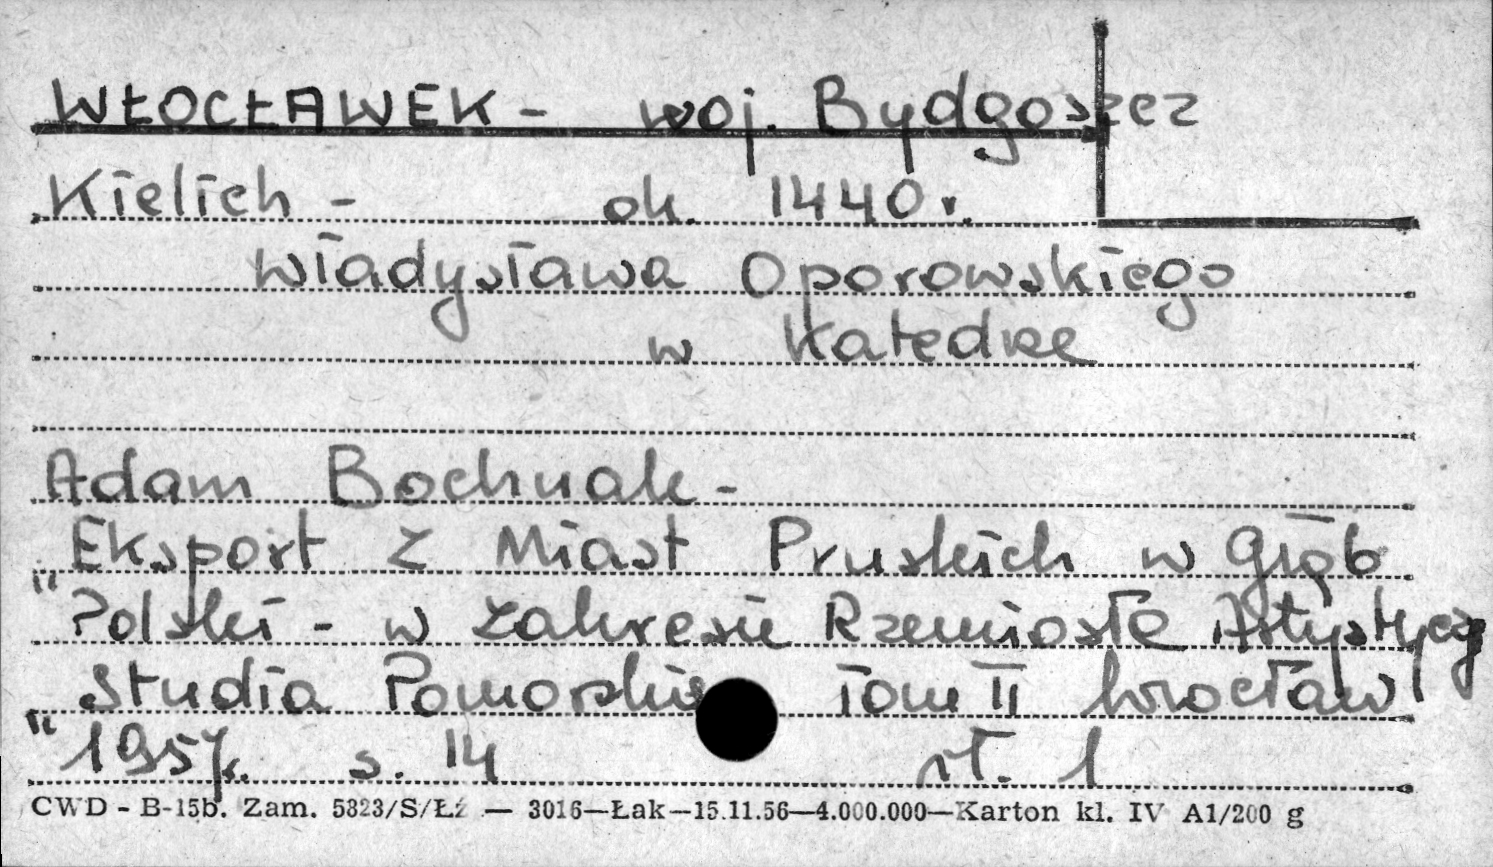 WŁOCŁAWEK - woj. Bydgoszcz
Kielich - ok. 1440 r.
Władysława Oporowskiego
w Katedrze
Adam Bochnak -
"Eksport z Miast Pruskich w Głąb
Polski - w zakresie Rzemiosła Artystycz
"Studia Pomorskie Tom II Wrocław
1957r. s. 14 il. 1
CWD - B-15b. Zam. 5823/S/Łź — 3016—Łak—15.11.56—4.000.000—Karton kl. IV A1/200 g